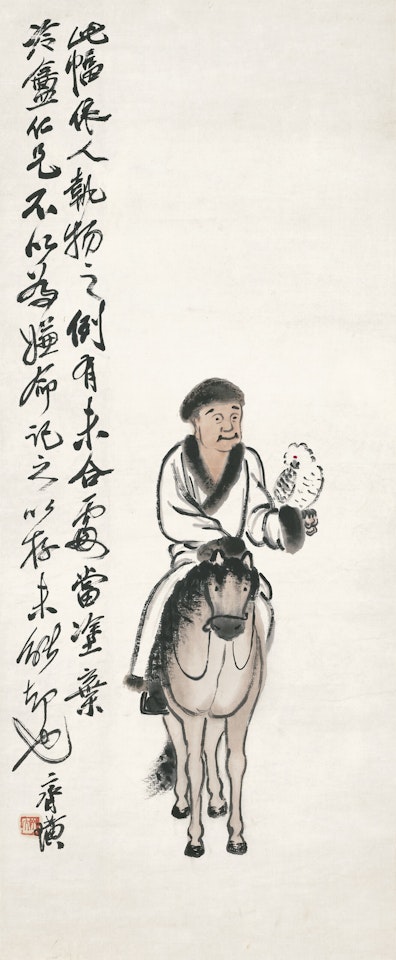 此幅作人執物之例有未合處當塗棄
冷盦仁兄不以為嫌命記之以存未能却也
齊璜